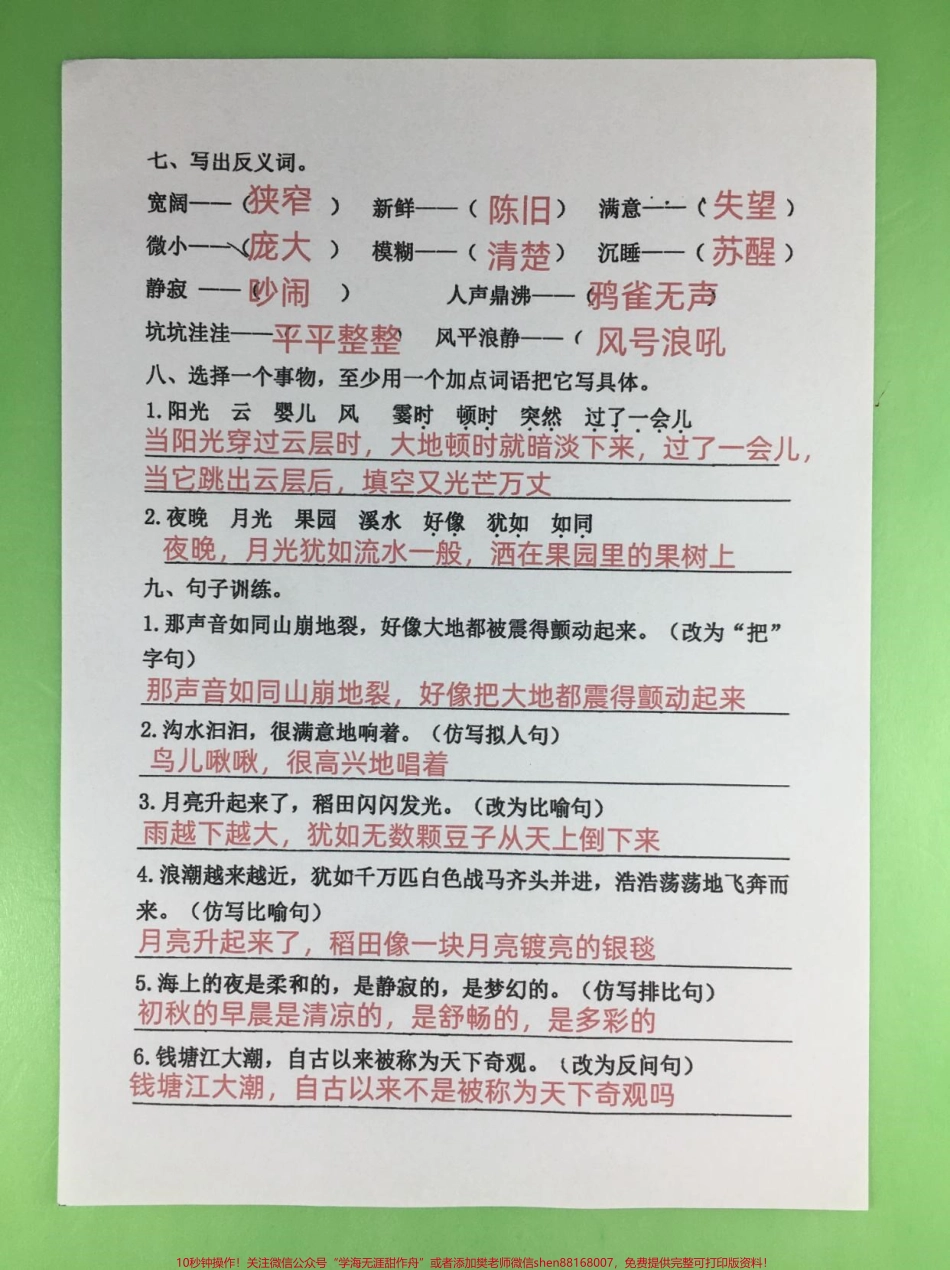 七、写出反义词。
宽阔——（狭窄） 新鲜——（陈旧） 满意——（失望）
微小——（庞大） 模糊——（清楚） 沉睡——（苏醒）
静寂 ——（吵闹） 人声鼎沸——（鸦雀无声）
坑坑洼洼——平平整整） 风平浪静——（风号浪吼
八、选择一个事物，至少用一个加点词语把它写具体。
1.阳光 云 婴儿 风 霎时 顿时 突然 过了一会儿
当阳光穿过云层时，大地顿时就暗淡下来，过了一会儿，
当它跳出云层后，填空又光芒万丈
2.夜晚 月光 果园 溪水 好像 犹如 如同
夜晚，月光犹如流水一般，洒在果园里的果树上
九、句子训练。
1.那声音如同山崩地裂，好像大地都被震得颤动起来。（改为“把”
字句）
那声音如同山崩地裂，好像把大地都震得颤动起来
2.沟水汩汩，很满意地响着。（仿写拟人句）
鸟儿啾啾，很高兴地唱着
3.月亮升起来了，稻田闪闪发光。（改为比喻句）
雨越下越大，犹如无数颗豆子从天上倒下来
4.浪潮越来越近，犹如千万匹白色战马齐头并进，浩浩荡荡地飞奔而
来。（仿写比喻句）
月亮升起来了，稻田像一块月亮镀亮的银毯
5.海上的夜是柔和的，是静寂的，是梦幻的。（仿写排比句）
初秋的早晨是清凉的，是舒畅的，是多彩的
6.钱塘江大潮，自古以来被称为天下奇观。（改为反问句）
钱塘江大潮，自古以来不是被称为天下奇观吗
10秒钟操作！关注微信公众号“学海无涯甜作舟”或者添加樊老师微信shen88168007，免费提供完整可打印版资料！